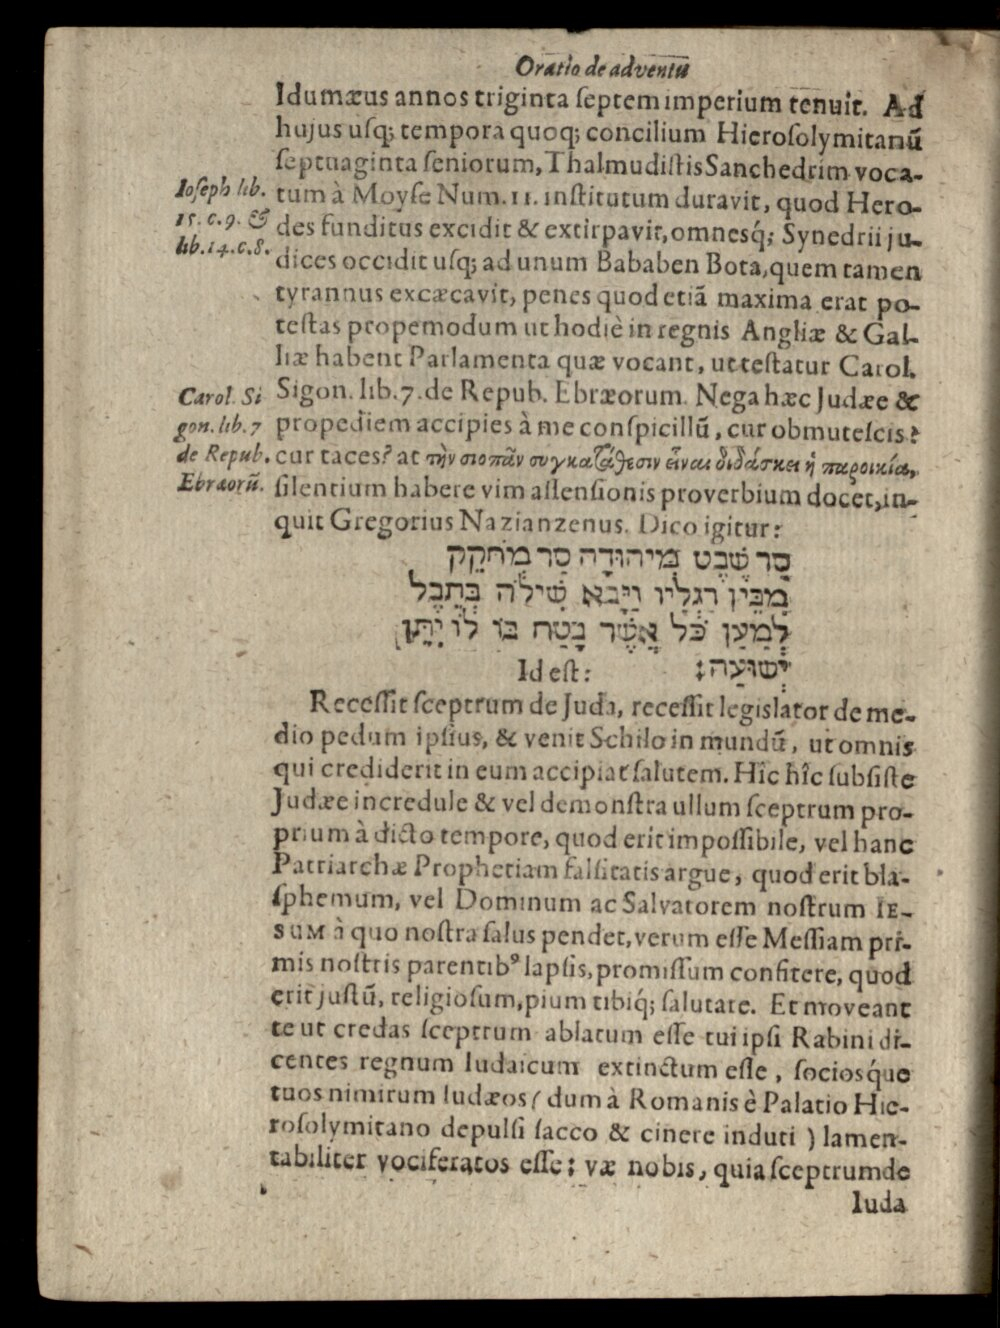 Oratio de adventu
Idumæus annos triginta ſeptem imperium tenuit. Ad
hujus uſq; tempora quoq; concilium Hieroſolymitanũ
ſeptuaginta ſeniorum, Thalmudiſtis Sanchedrim voca-
Ioſeph lib.
15. c. 9. &
lib. 14. c. 8.
tum à Moyſe Num. 11. inſtitutum duravit, quod Hero-
des funditus excidit & extirpavit, omnesq́; Synedrii ju-
dices occidit uſq; ad unum Bababen Bota, quem tamen
tyrannus excæcavit, penes quod etiã maxima erat po-
teſtas propemodum ut hodiè in regnis Angliæ & Gal-
liæ habent Parlamenta quæ vocant, ut teſtatur Carol.
Carol. Si
gon. lib. 7
de Repub.
Ebræorũ.
Sigon. lib. 7. de Repub. Ebræorum. Nega hæc Judæe &
propediem accipies à me conſpicillũ, cur obmuteſcis?
cur taces? at τὴν σιοπᾶν συγκατάθεσιν εἶναι διδάσκει ἡ παροικία,
ſilentium habere vim aſſenſionis proverbium docet, in-
quit Gregorius Nazianzenus. Dico igitur:
סָר שֵׁבֶט מִיהוּדָה סַר מְחֹקֵק
מִבֵּין רַגְלָיו וַיָּבֹא שִׁילֹה בְּתֵבֵל
לְמַעַן כֹּל אֲשֶׁר בָּטַח בּוֹ לוֹ יִתֵּן
יְשׁוּעָה׃
Id eſt:
Receſſit ſceptrum de Juda, receſſit legislator de me-
dio pedum ipſius, & venit Schilo in mundũ, ut omnis
qui crediderit in eum accipiat ſalutem. Hîc hîc ſubſiſte
Judæe incredule & vel demonſtra ullum ſceptrum pro-
prium à dicto tempore, quod erit impoſſibile, vel hanc
Patriarchæ Prophetiam falſitatis argue, quod erit bla-
ſphemum, vel Dominum ac Salvatorem noſtrum IE-
SUM à quo noſtra ſalus pendet, verum eſſe Meſſiam pri-
mis noſtris parentibꝰ lapſis, promiſſum confitere, quod
erit juſtũ, religioſum, pium tibiq́; ſalutare. Et moveant
te ut credas ſceptrum ablatum eſſe tui ipſi Rabini di-
centes regnum Iudaicum extinctum eſſe, ſociosq́ue
tuos nimirum Iudæos ( dum à Romanis è Palatio Hie-
roſolymitano depulſi ſacco & cinere induti ) lamen-
tabiliter vociferatos eſſe: væ nobis, quia ſceptrum de
Iuda